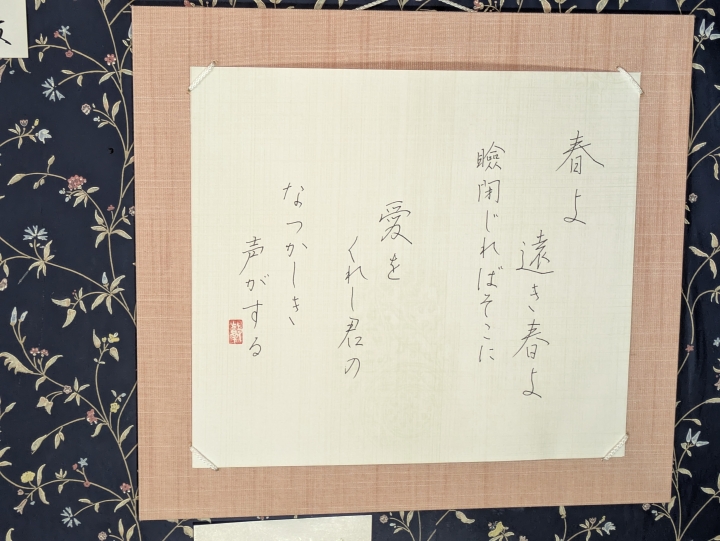 春よ
遠き春よ
瞼閉じればそこに
愛を
くれし君の
なつかしき
声がする